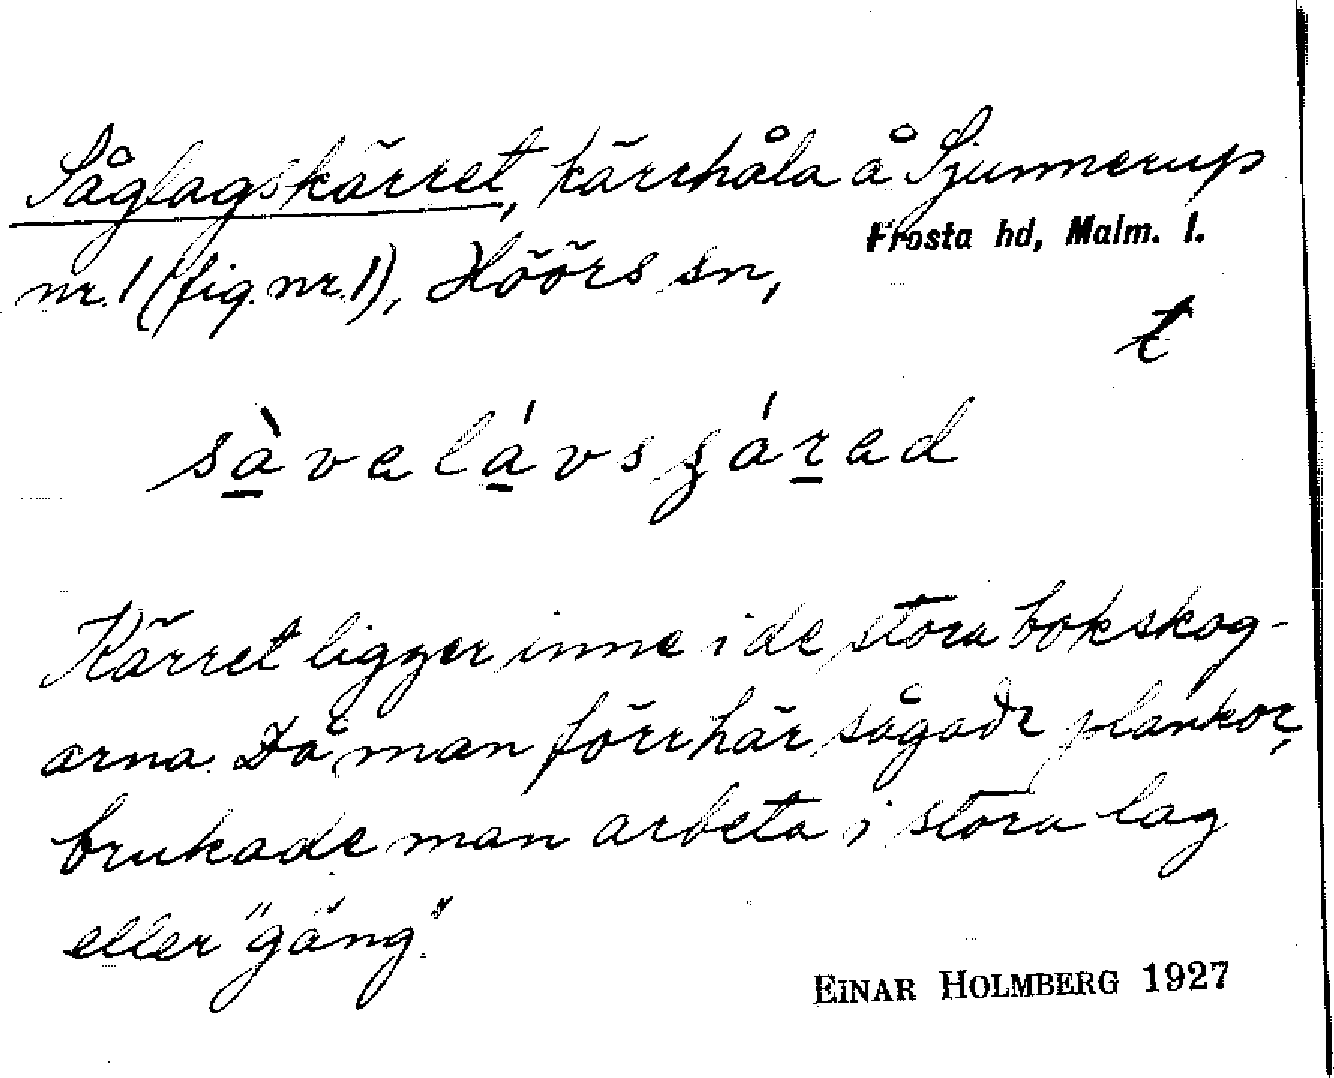 Såglagskärret, kärrhåla å Sjunnerup
Frosta hd, Malm. l.
nr. 1 (fig. nr 1), Höörs sn,
t
sàvalávsgárad
Kärret ligger inne i de stora bokskog-
arna. Då man förr här sågade plankor,
brukade man arbeta i stora lag
eller "gäng".
EINAR HOLMBERG 1927